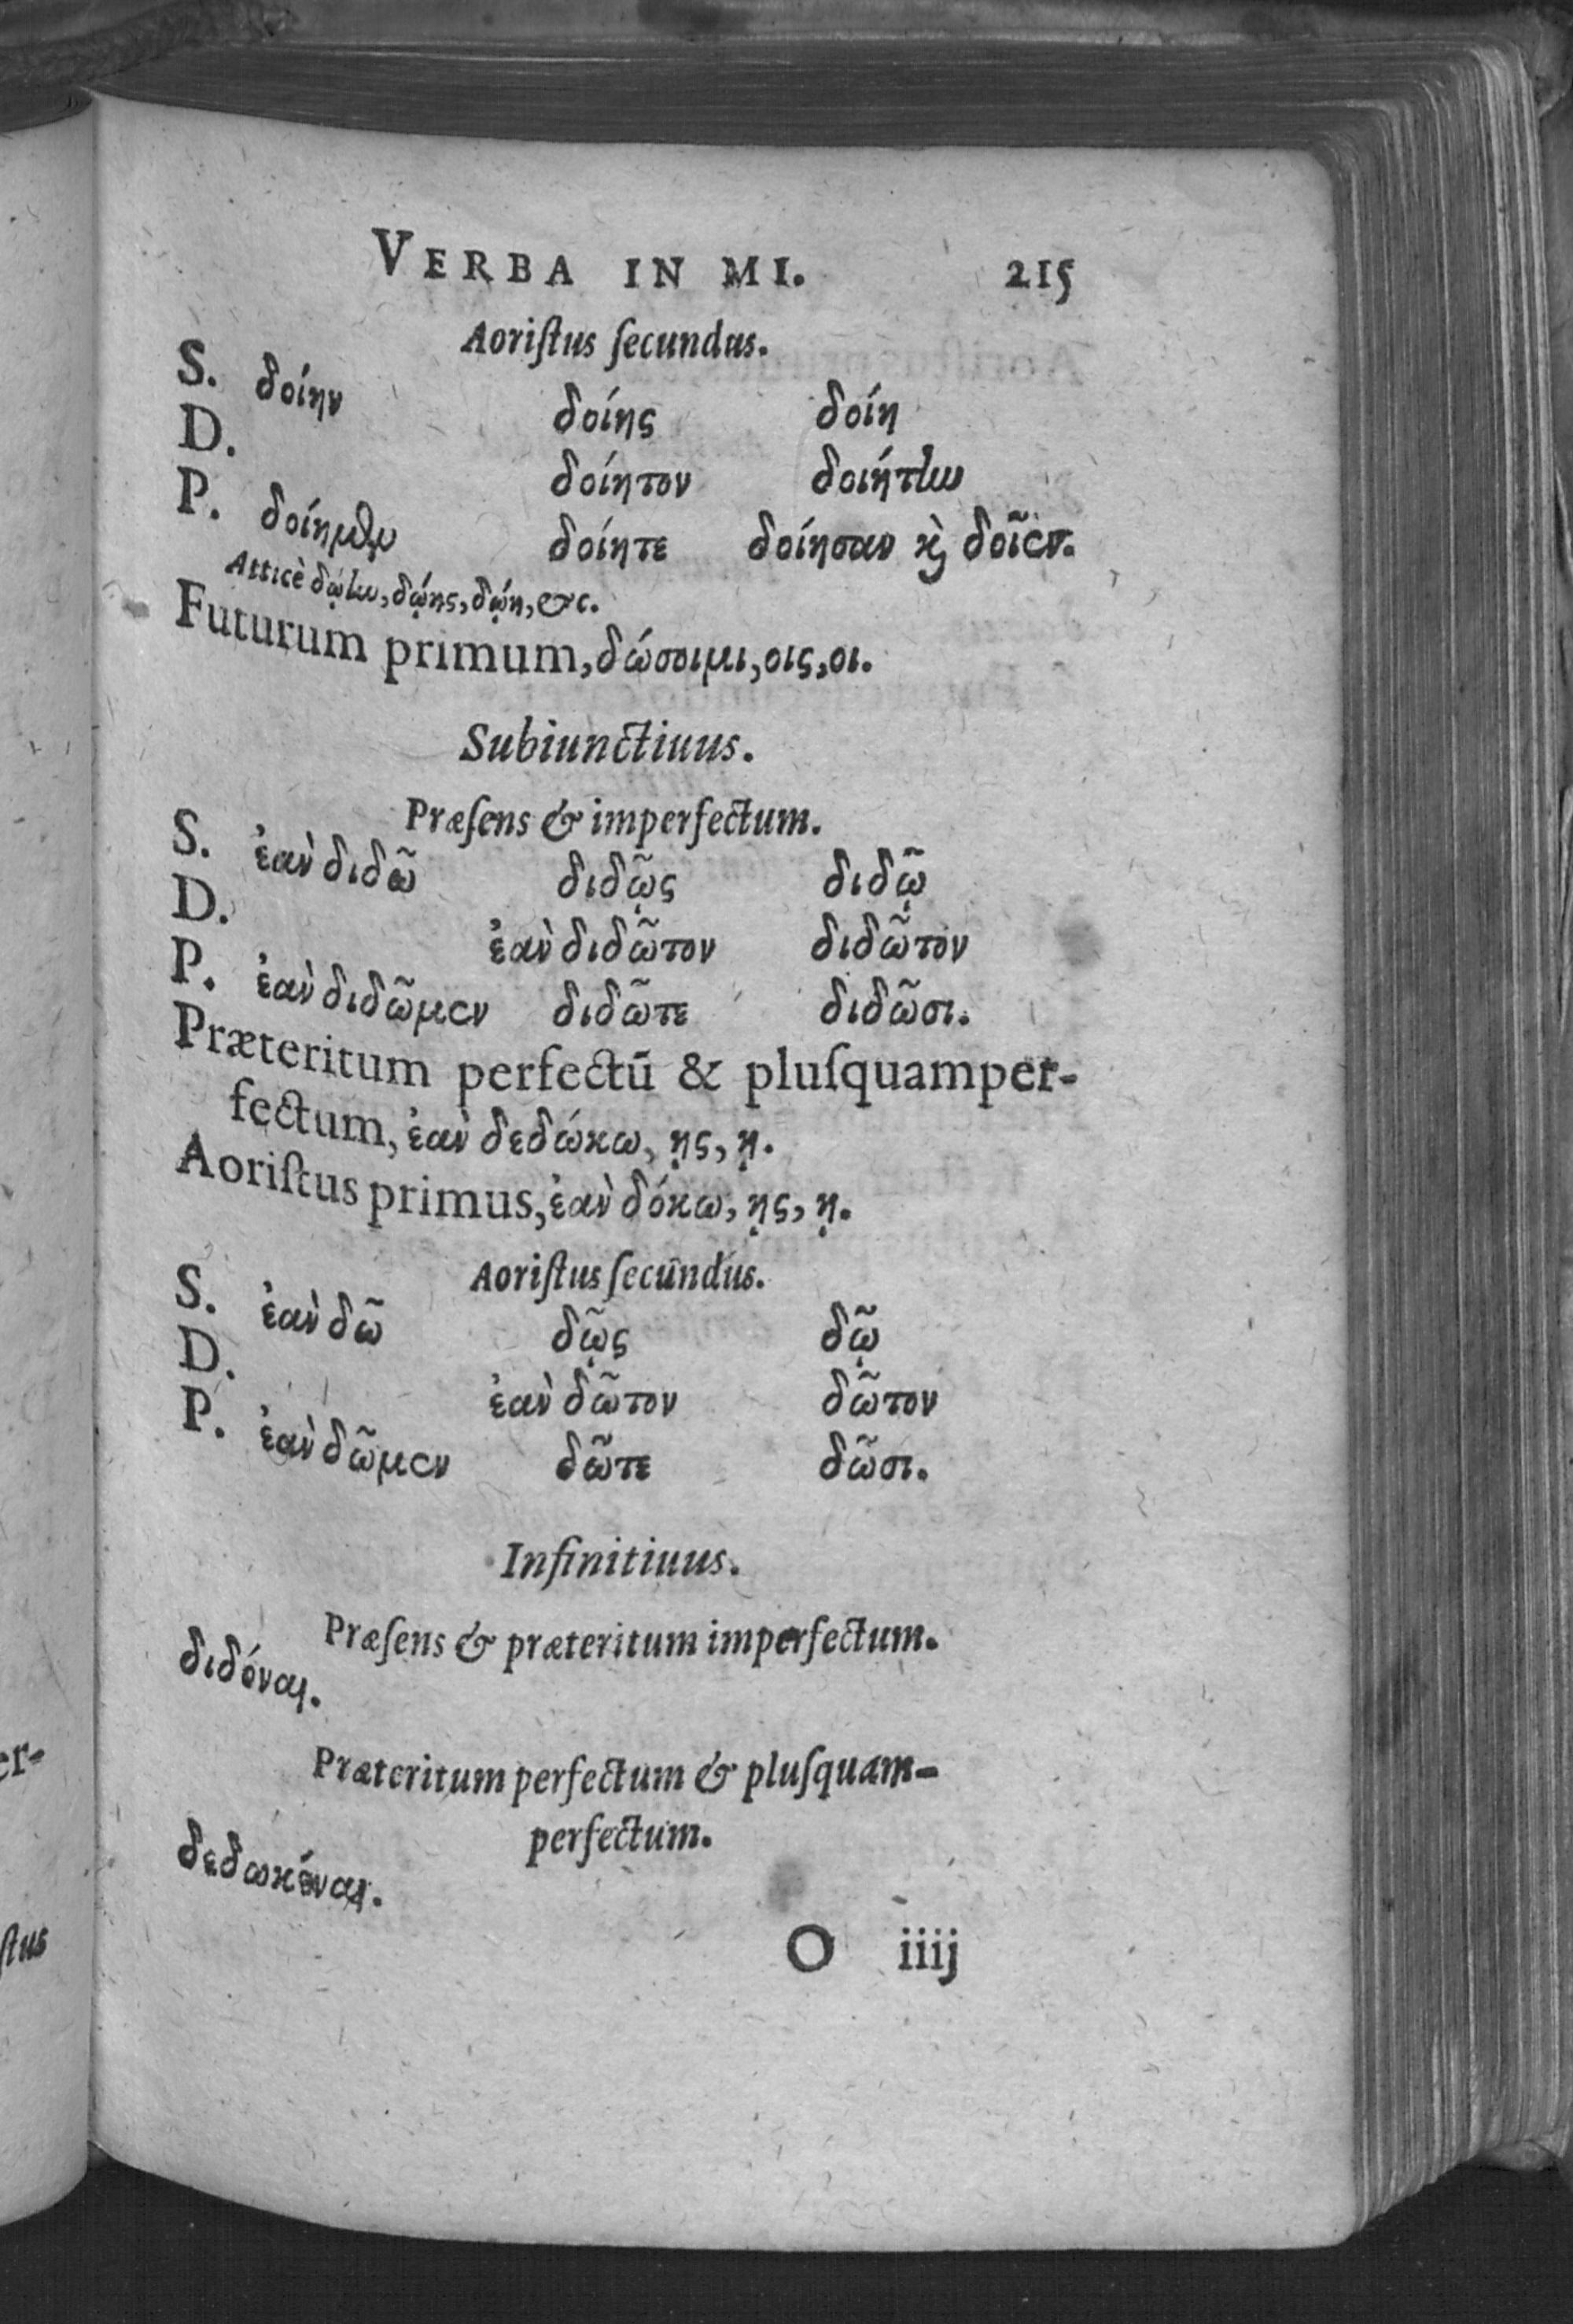 VERBA IN MI. 215
Aoriſtus ſecundus.
S. δοίην δοίης δοίη
D. δοίητον δοιήτην
P. δοίημεν δοίητε δοίησαν καὶ δοῖεν.
Atticè δῴην, δῴης, δῴη, &c.
Futurum primum, δώσοιμι, οις, οι.
Subiunctiuus.
Præſens & imperfectum.
S. ἐὰν διδῶ διδῷς διδῷ
D. ἐὰν διδῶτον διδῶτον
P. ἐὰν διδῶμεν διδῶτε διδῶσι.
Præteritum perfectū & pluſquamper-
fectum, ἐὰν δεδώκω, ῃς, ῃ.
Aoriſtus primus, ἐὰν δόκω, ῃς, ῃ.
Aoriſtus ſecundus.
S. ἐὰν δῶ δῷς δῷ
D. ἐὰν δῶτον δῶτον
P. ἐὰν δῶμεν δῶτε δῶσι.
Infinitiuus.
Præſens & præteritum imperfectum.
διδόναι.
Præteritum perfectum & pluſquam-
perfectum.
δεδωκέναι.
O iiij
er-
ſtus